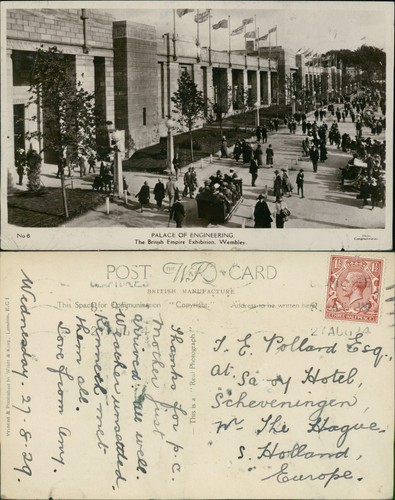 No 8
PALACE OF ENGINEERING.
The British Empire Exhibition, Wembley.
POST CARD
BRITISH MANUFACTURE
This Space for Communication
Copyright.
Address to be written here
Printed & Published by
London, E.C.1
This is a
Real Photograph
Wednesday. 27-8-29.
Thanks for p.c.
Mother just
arrived: all well.
Weather unsettled.
them all.
Love from Amy.
27 AUG 24
T. E. Pollard Esq.,
Hotel,
Scheveningen,
Nr. The Hague,
S. Holland,
Europe.